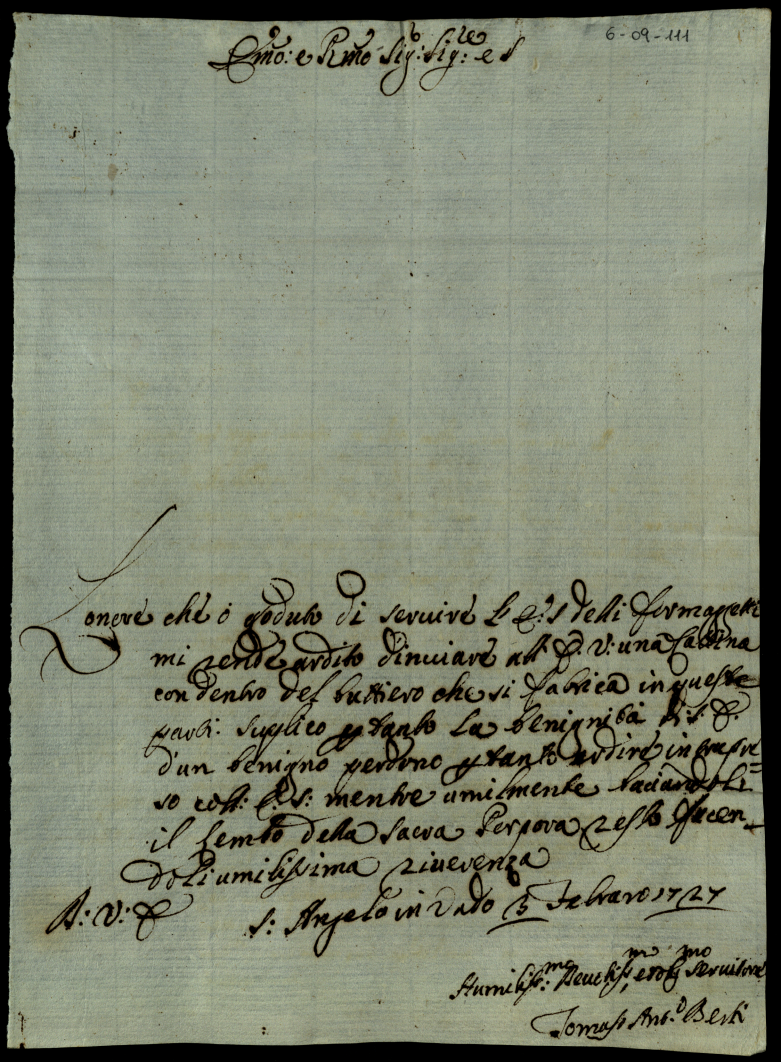 6-09-111
Emo: e Rmo Sig: Sig:re e S
Lonore che ò goduto di servire L E: S delli formaggetti
mi rende ardito d'inviare all E. V: una Cassina
con dentro del buttiero che si fabrica in queste
parti. suplico p tanto la benignità di S. E.
d'un benigno perdono p tanto ardire
so coll: E: S: mentre umilmente baciandoli
il lembo della Sacra Porpora resto facen
doli umilissima riverenza
A: V: E S: Angelo in Vado 5 Febraro 1727
Humiliss:mo Devotiss:mo et oblg mo Servitore
Tomaso Anto Berti